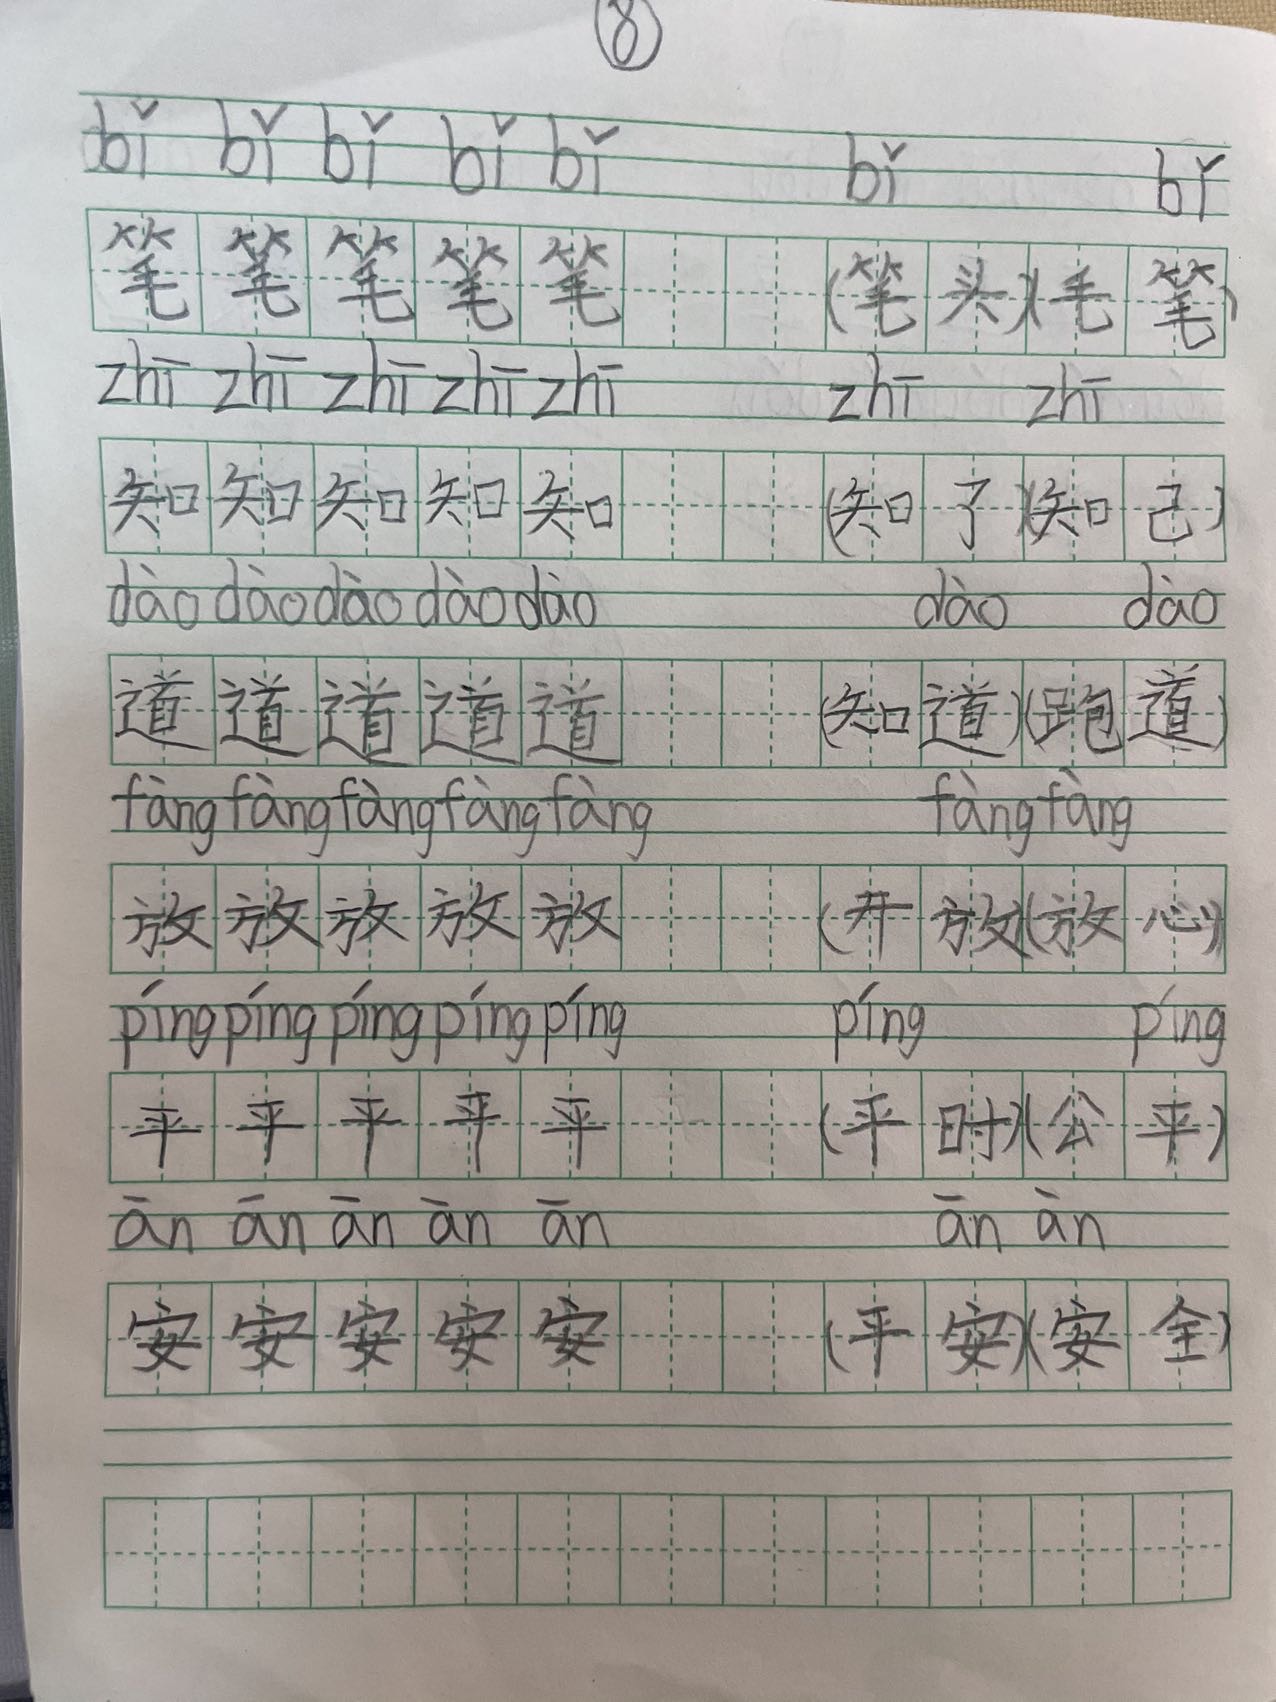 8
bǐ bǐ bǐ bǐ bǐ bǐ bǐ
笔 笔 笔 笔 笔 (笔头)(毛笔)
zhī zhī zhī zhī zhī zhī zhī
知 知 知 知 知 (知了)(知己)
dào dào dào dào dào dào dào
道 道 道 道 道 (知道)(跑道)
fàng fàng fàng fàng fàng fàng fàng
放 放 放 放 放 (开放)(放心)
píng píng píng píng píng píng píng
平 平 平 平 平 (平时)(公平)
ān ān ān ān ān ān ān
安 安 安 安 安 (平安)(安全)